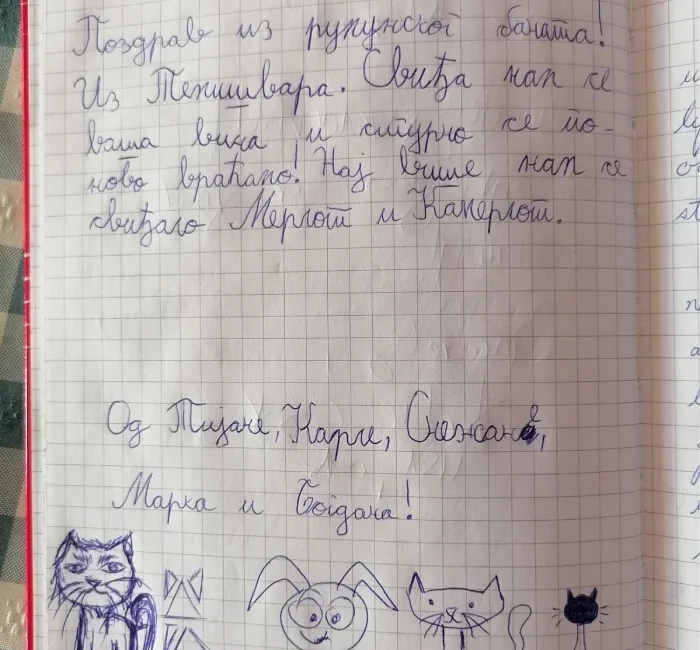 Поздрав из румунског баната!
Из Темишвара. Свиђа нам се
ваша вина и сигурно се по-
ново враћамо! Нај више нам се
свиђало Мерлот и Камерлот.
Од Тијане, Карле, Снежане,
Марка и Богдана!